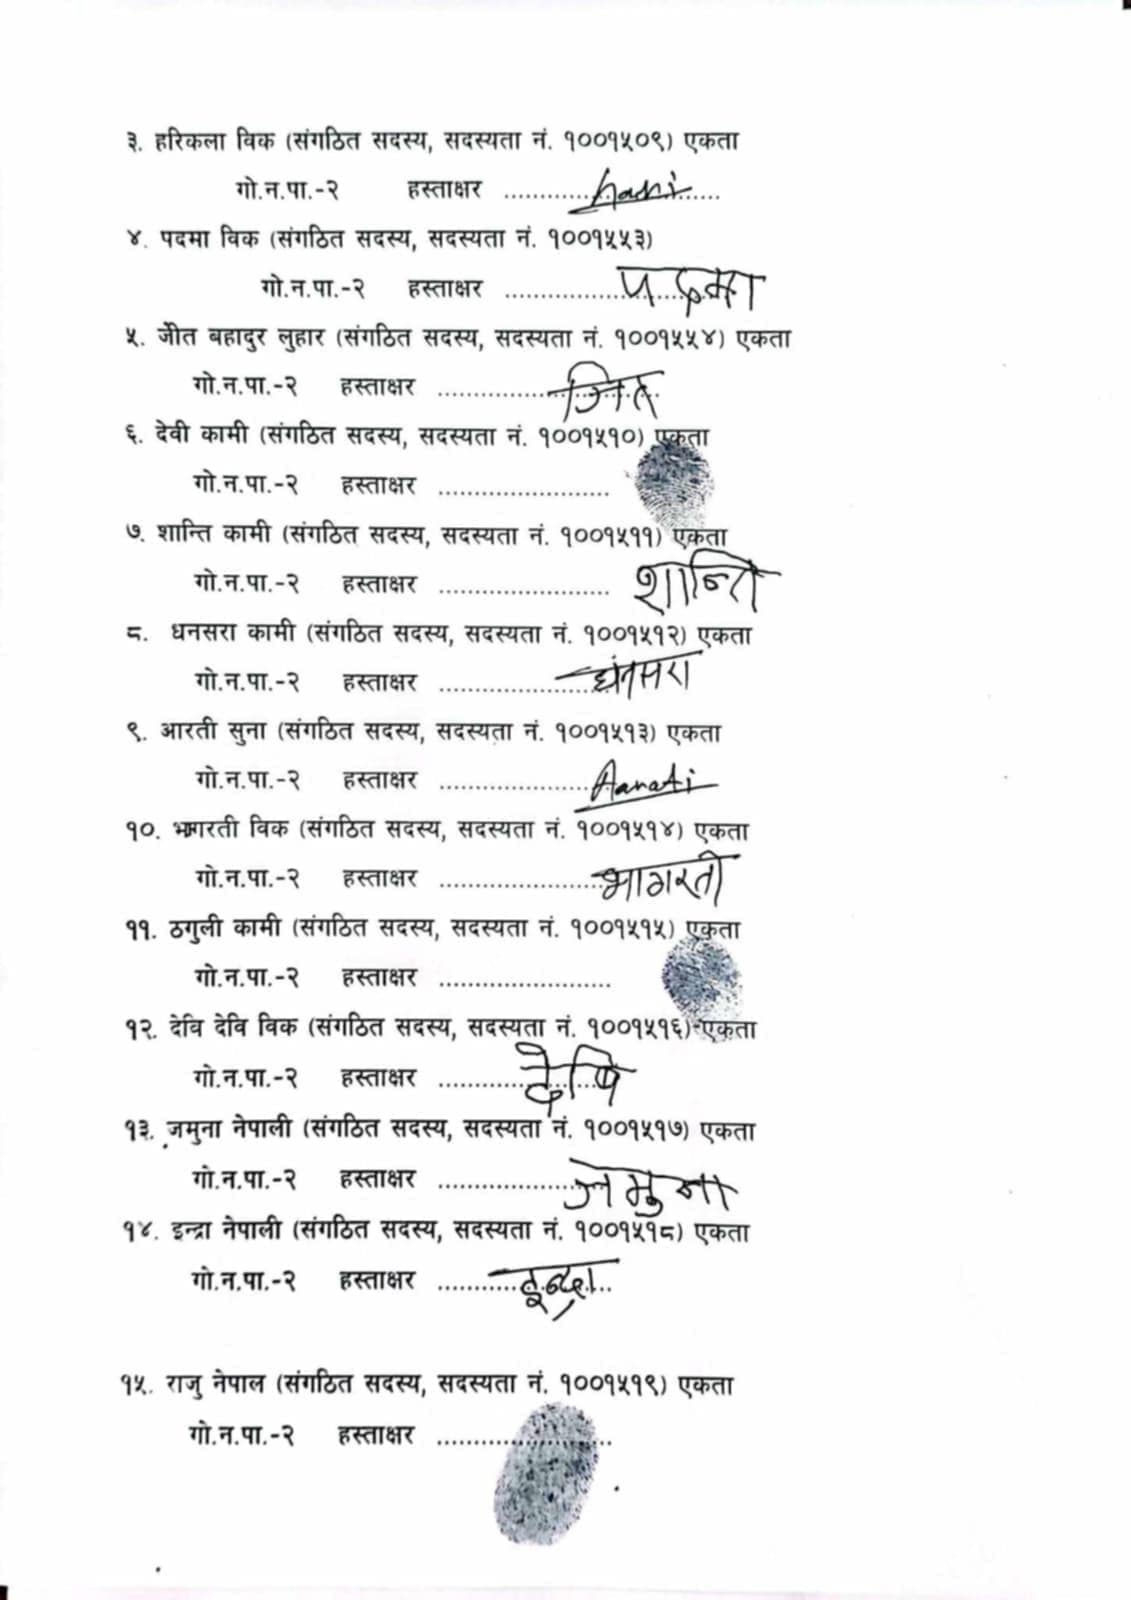 ३. हरिकला विक (संगठित सदस्य, सदस्यता नं. १००१५०९) एकता
गो.न.पा.-२ हस्ताक्षर ....................
४. पदमा विक (संगठित सदस्य, सदस्यता नं. १००१५५३)
गो.न.पा.-२ हस्ताक्षर .................... पदमा
५. जीत बहादुर लुहार (संगठित सदस्य, सदस्यता नं. १००१५५४) एकता
गो.न.पा.-२ हस्ताक्षर .................... जित
६. देवी कामी (संगठित सदस्य, सदस्यता नं. १००१५१०) एकता
गो.न.पा.-२ हस्ताक्षर ....................
७. शान्ति कामी (संगठित सदस्य, सदस्यता नं. १००१५११) एकता
गो.न.पा.-२ हस्ताक्षर .................... शान्ति
८. धनसरा कामी (संगठित सदस्य, सदस्यता नं. १००१५१२) एकता
गो.न.पा.-२ हस्ताक्षर .................... धंनसरा
९. आरती सुना (संगठित सदस्य, सदस्यता नं. १००१५१३) एकता
गो.न.पा.-२ हस्ताक्षर .................... Aarati
१०. भागरती विक (संगठित सदस्य, सदस्यता नं. १००१५१४) एकता
गो.न.पा.-२ हस्ताक्षर .................... भागरती
११. ठगुली कामी (संगठित सदस्य, सदस्यता नं. १००१५१५) एकता
गो.न.पा.-२ हस्ताक्षर ....................
१२. देवि देवि विक (संगठित सदस्य, सदस्यता नं. १००१५१६) एकता
गो.न.पा.-२ हस्ताक्षर .................... देवि
१३. जमुना नेपाली (संगठित सदस्य, सदस्यता नं. १००१५१७) एकता
गो.न.पा.-२ हस्ताक्षर .................... जमुना
१४. इन्द्रा नेपाली (संगठित सदस्य, सदस्यता नं. १००१५१८) एकता
गो.न.पा.-२ हस्ताक्षर .................... इन्द्रा
१५. राजु नेपाल (संगठित सदस्य, सदस्यता नं. १००१५१९) एकता
गो.न.पा.-२ हस्ताक्षर ....................